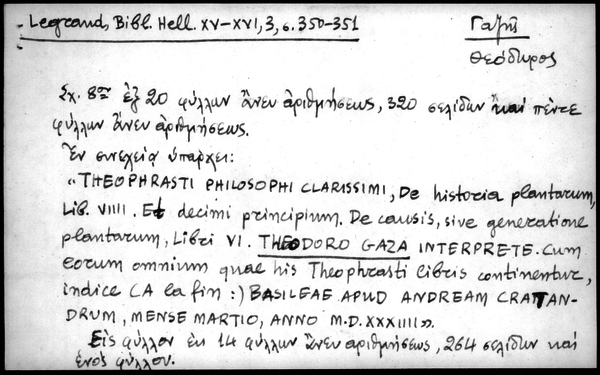 Legrand, Bibl. Hell. XV–XVI, 3, σ. 350–351
Γαζῆς
Θεόδωρος
Σχ. 8ον ἐξ 20 φύλλων ἄνευ ἀριθμήσεως, 320 σελίδων καὶ πέντε
φύλλων ἄνευ ἀριθμήσεως.
Ἐν συνεχείᾳ ὑπάρχει:
"THEOPHRASTI PHILOSOPHI CLARISSIMI, De historia plantarum,
Lib. VIIII. Et decimi principium. De causis, sive generatione
plantarum, Libri VI. THEODORO GAZA INTERPRETE. Cum
eorum omnium quae his Theophrasti libris continentur,
indice (A la fin:) BASILEAE APUD ANDREAM CRATTAN-
DRUM, MENSE MARTIO, ANNO M.D.XXXIIII».
Εἰς φύλλον ἐκ 14 φύλλων ἄνευ ἀριθμήσεως, 264 σελίδων καὶ
ἑνὸς φύλλου.